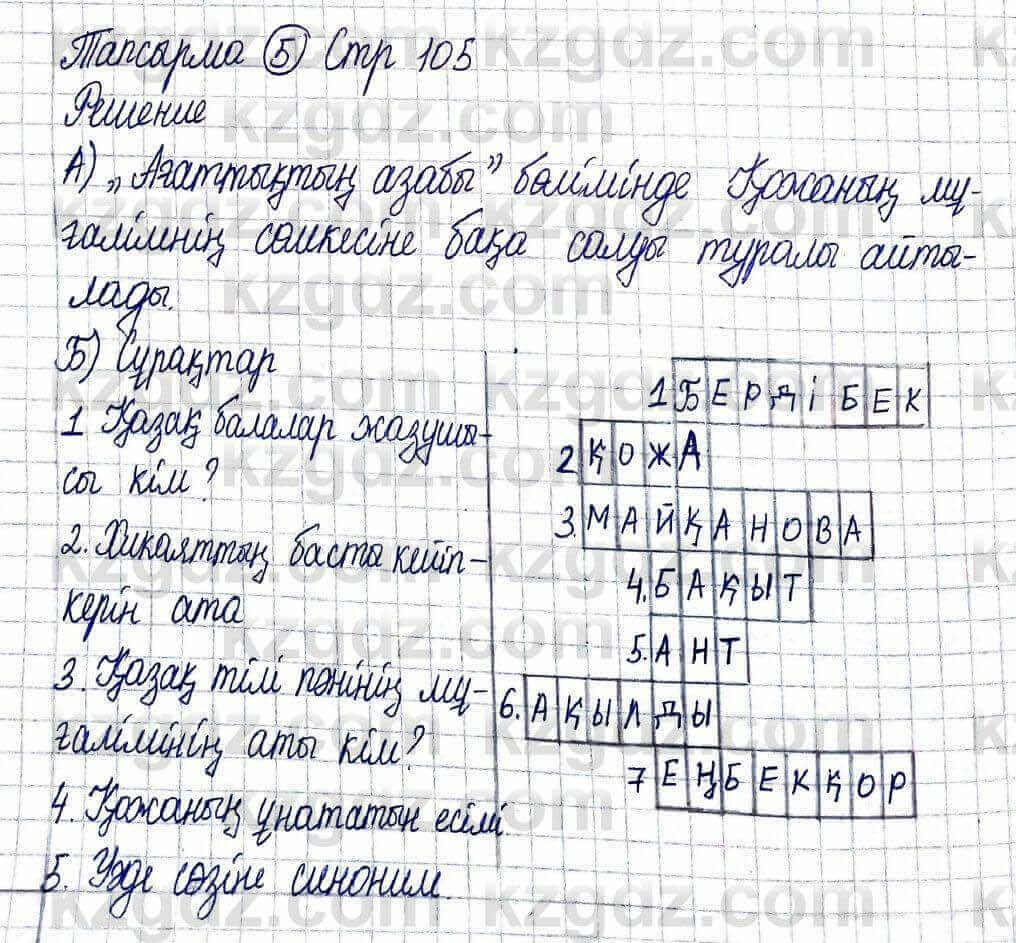 Тапсырма 5 Стр 105
Решение
А) „Ағаттықтың азабы” бөлімінде Қожаның мұ-
ғалімнің сөмкесіне бақа салуы туралы айты-
лады.
Б) Сұрақтар
1 Қазақ балалар жазушы-
сы кім?
2. Хикаяттың басты кейіп-
керін ата
3. Қазақ тілі пәнінің мұ-
ғалімінің аты кім?
4. Қожаның ұнататын есімі.
5. Уәде сөзіне синоним.
1 БЕРДІБЕК
2 ҚОЖА
3. МАЙҚАНОВА
4. БАҚЫТ
5. АНТ
6. АҚЫЛДЫ
7 ЕҢБЕКҚОР
kzgdz.com